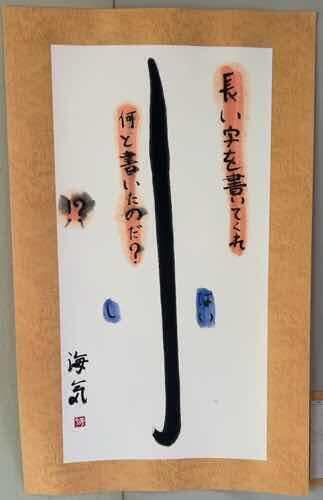 長い字を書いてくれ
はい
し
何と書いたのだ？
し
!?
海気